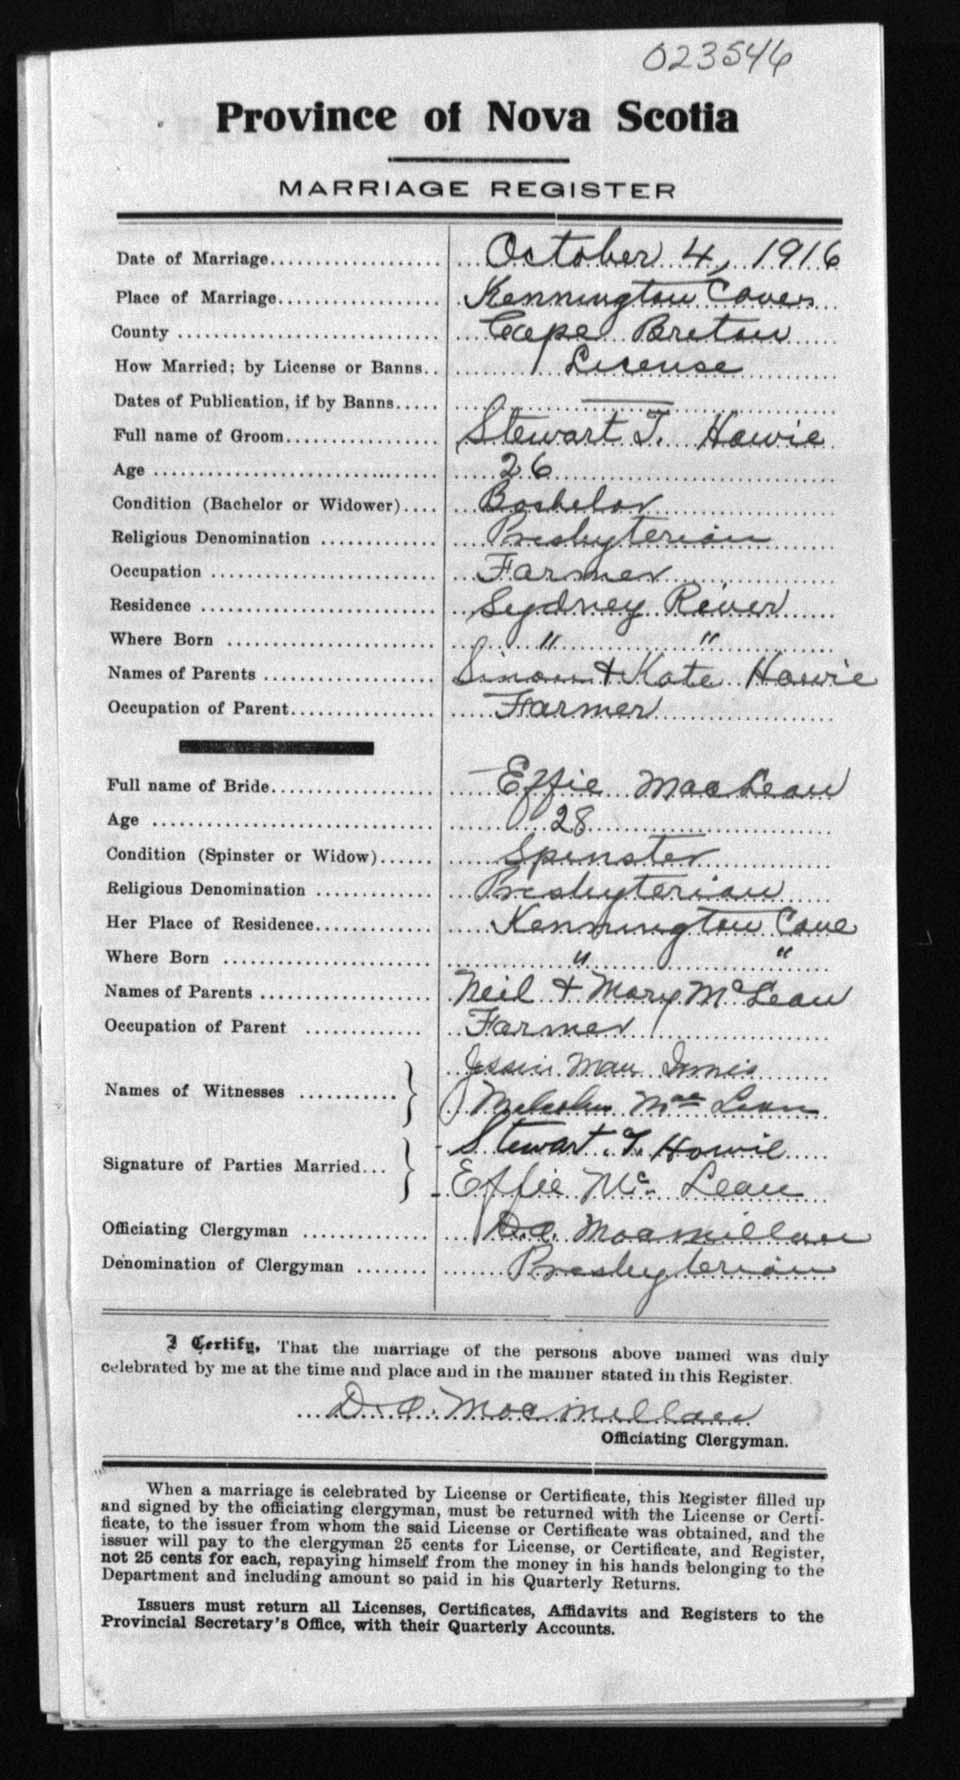 023546
Province of Nova Scotia
MARRIAGE REGISTER
Date of Marriage.................. October 4, 1916
Place of Marriage.................. Kennington Cove
County .................. Cape Breton
How Married; by License or Banns.. License
Dates of Publication, if by Banns..... —
Full name of Groom.................. Stewart T. Howie
Age .................. 26
Condition (Bachelor or Widower).... Bachelor
Religious Denomination ............. Presbyterian
Occupation .................. Farmer
Residence .................. Sydney River
Where Born .................. " "
Names of Parents .................. Simon & Kate Howie
Occupation of Parent.................. Farmer
Full name of Bride.................. Effie MacLean
Age .................. 28
Condition (Spinster or Widow)...... Spinster
Religious Denomination ............. Presbyterian
Her Place of Residence............. Kennington Cove
Where Born .................. " "
Names of Parents .................. Neil & Mary McLean
Occupation of Parent ............. Farmer
Innis
Names of Witnesses ............ } Malcolm Mac Lean
Stewart. T. Howie
Signature of Parties Married... } Effie Mc Lean
Officiating Clergyman .............. D.A. Macmillan
Denomination of Clergyman ........ Presbyterian
I Certify, That the marriage of the persons above named was duly
celebrated by me at the time and place and in the manner stated in this Register.
D.A. Macmillan
Officiating Clergyman.
When a marriage is celebrated by License or Certificate, this Register filled up
and signed by the officiating clergyman, must be returned with the License or Certi-
ficate, to the issuer from whom the said License or Certificate was obtained, and the
issuer will pay to the clergyman 25 cents for License, or Certificate, and Register,
not 25 cents for each, repaying himself from the money in his hands belonging to the
Department and including amount so paid in his Quarterly Returns.
Issuers must return all Licenses, Certificates, Affidavits and Registers to the
Provincial Secretary's Office, with their Quarterly Accounts.